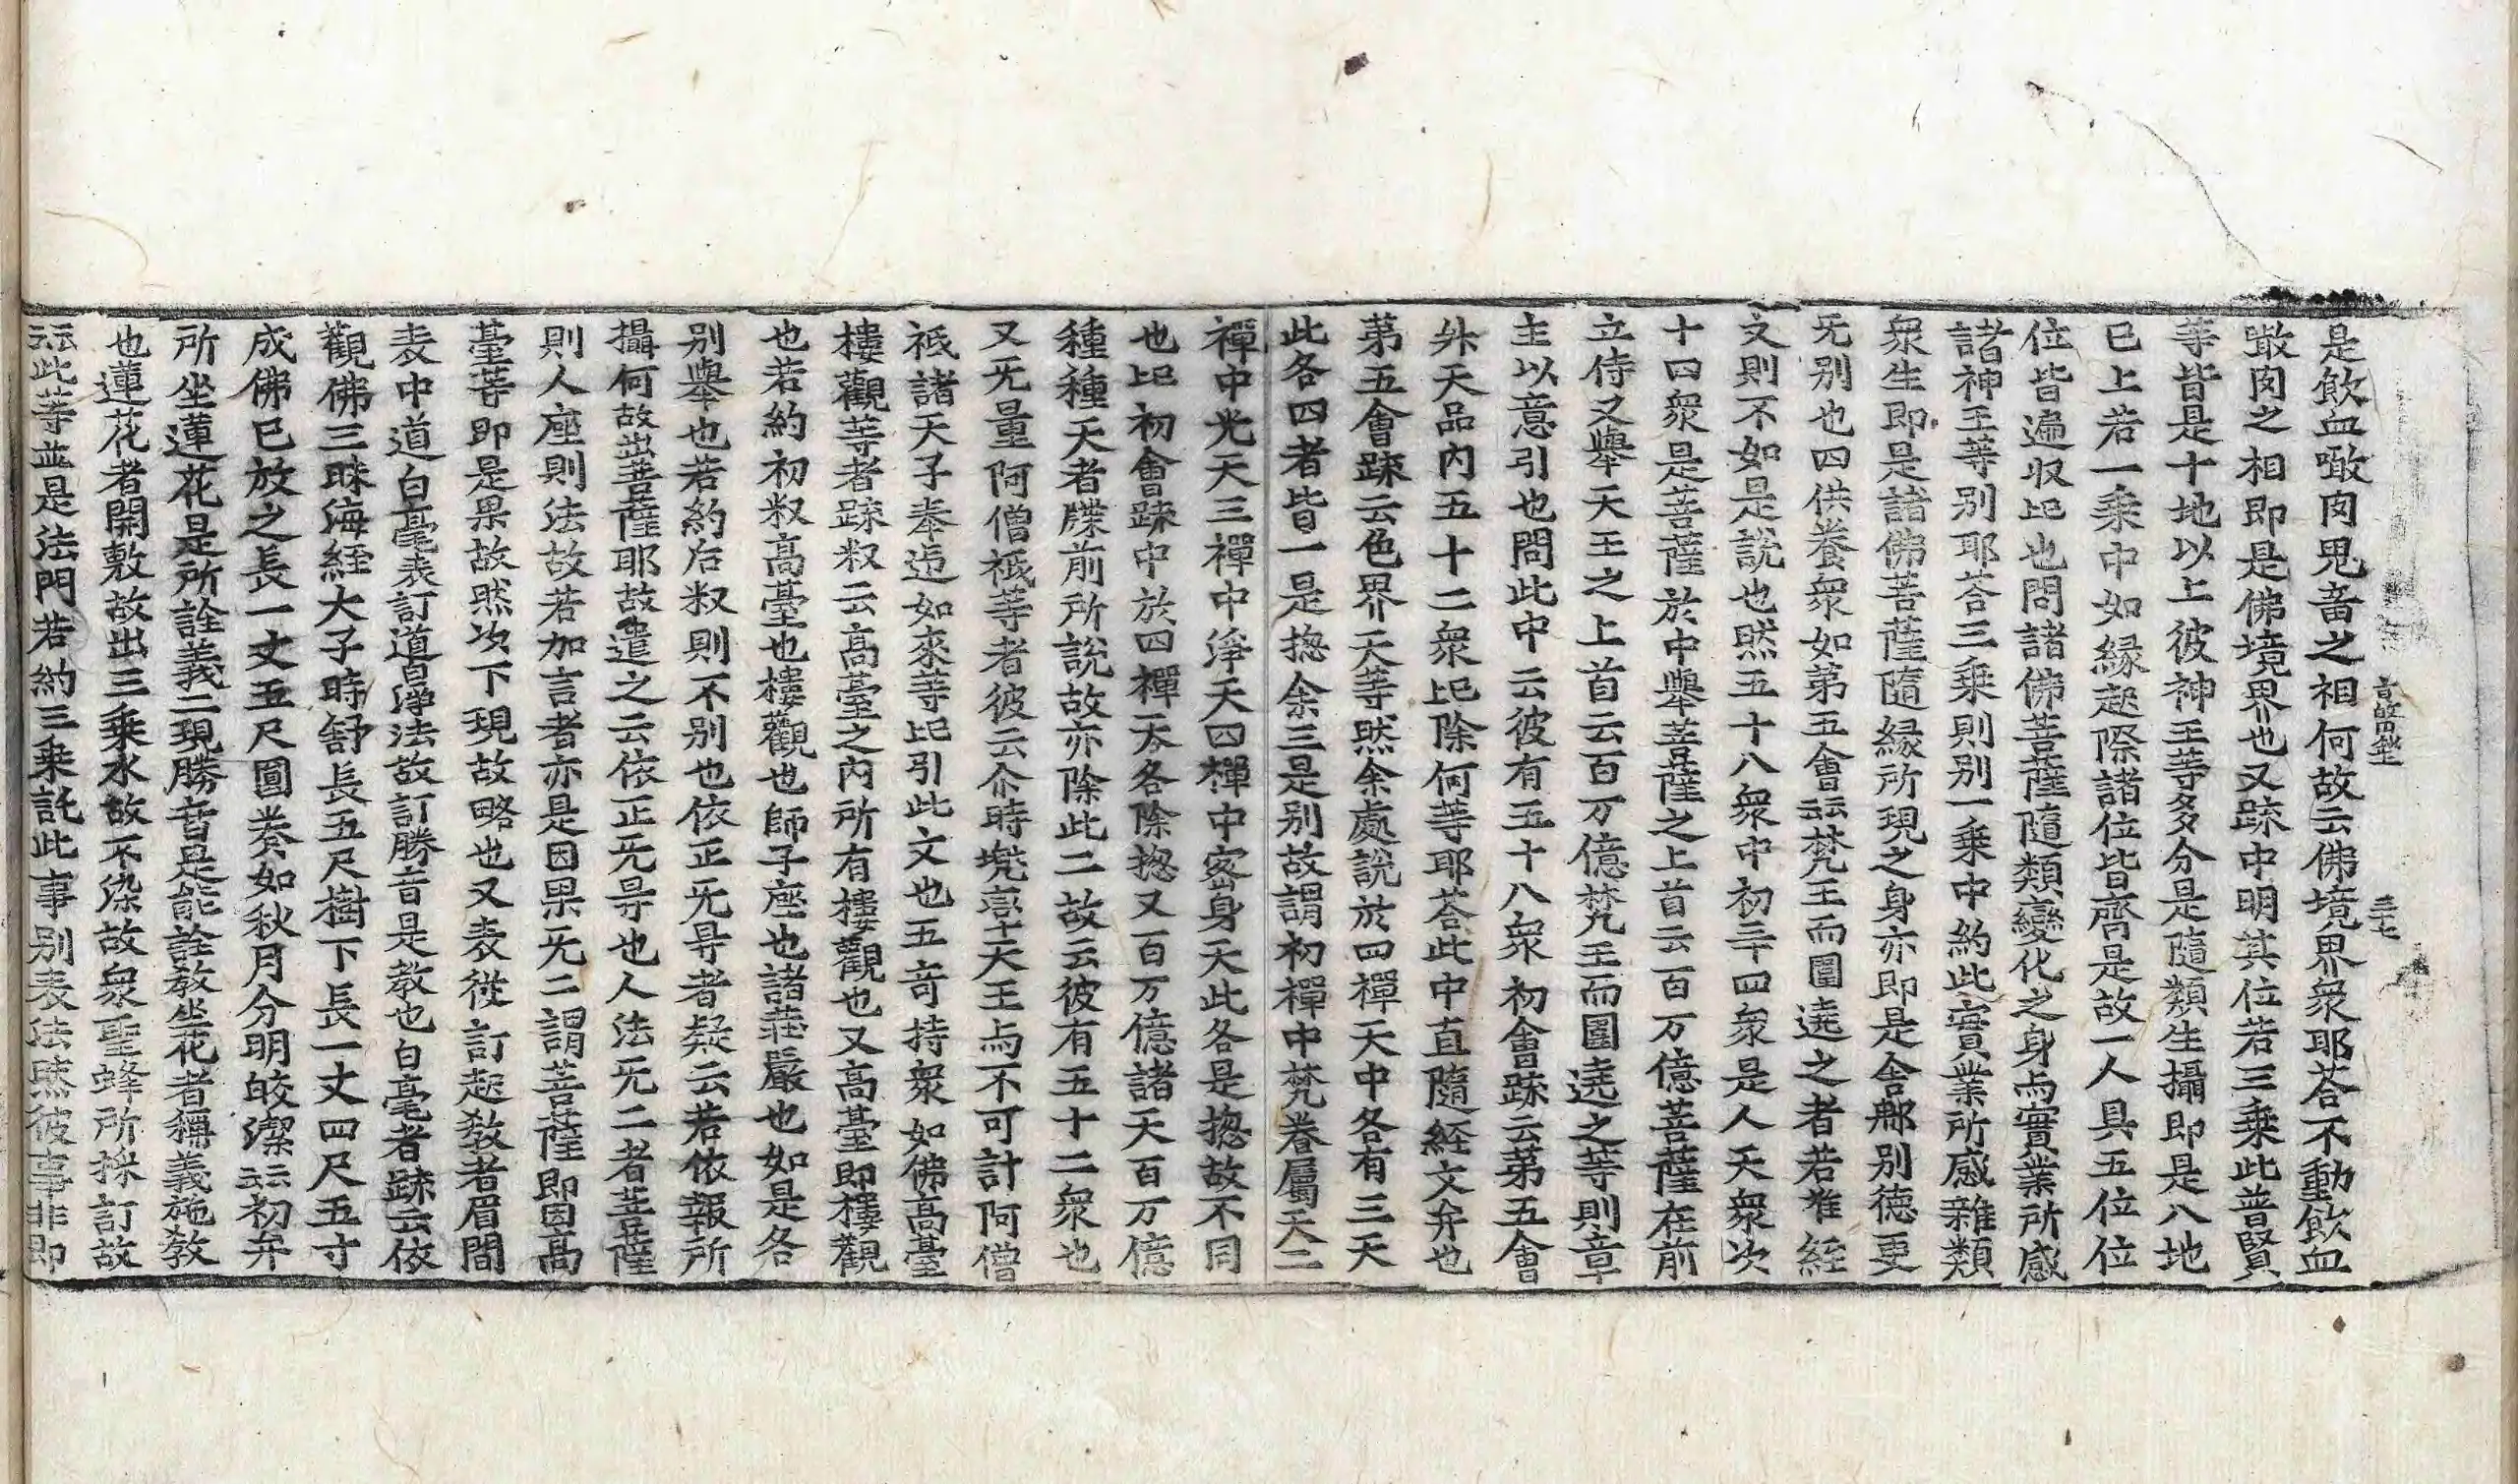 是飮血噉肉鬼畜之相何故云佛境界衆耶荅不動飮血
噉肉之相即是佛境界也又䟽中明其位若三乗此普賢
等皆是十地以上彼神王等多分是隨類生攝即是八地
已上若一乗中如縁起際諸位皆齊是故一人具五位位
位皆遍収此也問諸佛菩薩隨類變化之身与實業所感
諸神王等別耶荅三乗則别一乗中約此實業所感雜類
衆生即是諸佛菩薩隨縁所現之身亦即是舎那别德更
旡别也四供養衆如第五會云云梵王而圍遶之者若准經
文則不如是說也然五十八衆中初二十四衆是人天衆次
十四衆是菩薩於中擧菩薩之上首云百万億菩薩在前
立侍又擧天王之上首云百万億梵王而圍遶之等則章
主以意引也問此中云彼有五十八衆初會䟽云第五會
外天品内五十二衆此除何等耶荅此中直隨經文弁也
第五會䟽云色界天等然余處說於四禪天中各有三天
此各四者皆一是揔余三是别故謂初禪中梵眷屬天二
禪中光天三禪中淨天四禪中密身天此各是揔故不同
也此初會䟽中於四禪天各除揔又百万億諸天百万億
種種天者牒前所說故亦除此二故云彼有五十二衆也
又旡量阿僧祇等者彼云尒時兠率天王与不可計阿僧
祇諸天子奉迎如來等此引此文也五竒持衆如佛高臺
樓觀等者䟽䆁云高臺之内所有樓觀也又高臺即樓觀
也若約初䆁高臺也樓觀也師子座也諸莊嚴也如是各
别擧也若約后䆁則不别也依正旡㝵者疑云若依報所
攝何故出菩薩耶故遣之云依正旡㝵也人法旡二者菩薩
則人座則法故若加言者亦是因果旡二謂菩薩即因高
臺等即是果故然次下現故略也又表從訂起敎者眉間
表中道白毫表訂道昷淨法故訂勝音是敎也白毫者䟽云依
觀佛三昧海経大子時舒長五尺樹下長一丈四尺五寸
成佛已放之長一丈五尺圍養如秋月分明皎潔云云初弁
所坐蓮花是所詮義二現勝音是能詮敎坐花者稱義施敎
也蓮花者開敷故出三乗水故不染故衆聖蜂所採訂故
云云此等並是法門若約三乗託此事别表法然彼事非即